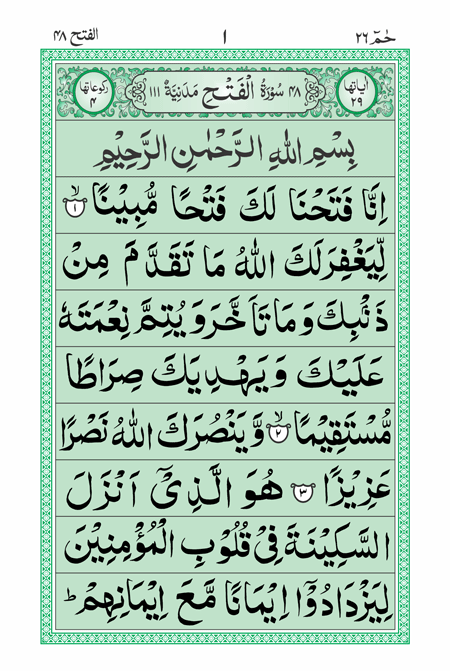 حٰمٓ ٢٦
١
الفتح ٤٨
اٰیاتها ٢٩
٤٨ سُوْرَةُ الْفَتْحِ مَدَنِيَّةٌ ١١١
ركوعاتها ٤
بِسْمِ اللهِ الرَّحْمٰنِ الرَّحِيْمِ
اِنَّا فَتَحْنَا لَكَ فَتْحًا مُّبِيْنًا ۙ﴿١﴾
لِّيَغْفِرَ لَكَ اللهُ مَا تَقَدَّمَ مِنْ
ذَنْۢبِكَ وَ مَا تَاَخَّرَ وَ يُتِمَّ نِعْمَتَهٗ
عَلَيْكَ وَ يَهْدِيَكَ صِرَاطًا
مُّسْتَقِيْمًا ۙ﴿٢﴾ وَّ يَنْصُرَكَ اللهُ نَصْرًا
عَزِيْزًا ﴿٣﴾ هُوَ الَّذِيْۤ اَنْزَلَ
السَّكِيْنَةَ فِيْ قُلُوْبِ الْمُؤْمِنِيْنَ
لِيَزْدَادُوْۤا اِيْمَانًا مَّعَ اِيْمَانِهِمْ ؕ